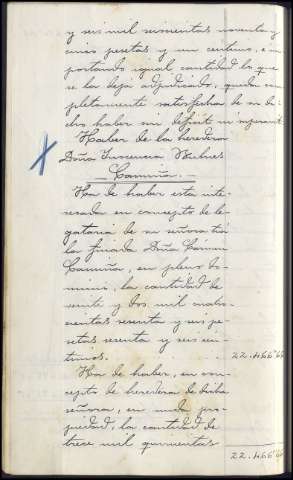 y seis mil seiscientas noventa y
cinco pesetas y un centimo, é im
portando igual cantidad lo que
se la deja adjudicado, queda com
pletamente satisfecha de su de
cho haber sin déficit ni
Haber de la heredera
Doña Inocencia
Camiña.
Ha de haber esta inte-
resada en concepto de le-
gataria de su señora tia
la finada Doña Cármen
Camiña, en pleno do-
minio, la cantidad de
veinte y dos mil cuatro
cientas sesenta y seis pe-
setas sesenta y seis cen-
timos. 22.466'66
Ha de haber, en con-
cepto de heredera de dicha
señora, en nuda pro-
piedad, la cantidad de
trece mil quinientas
22.466'66